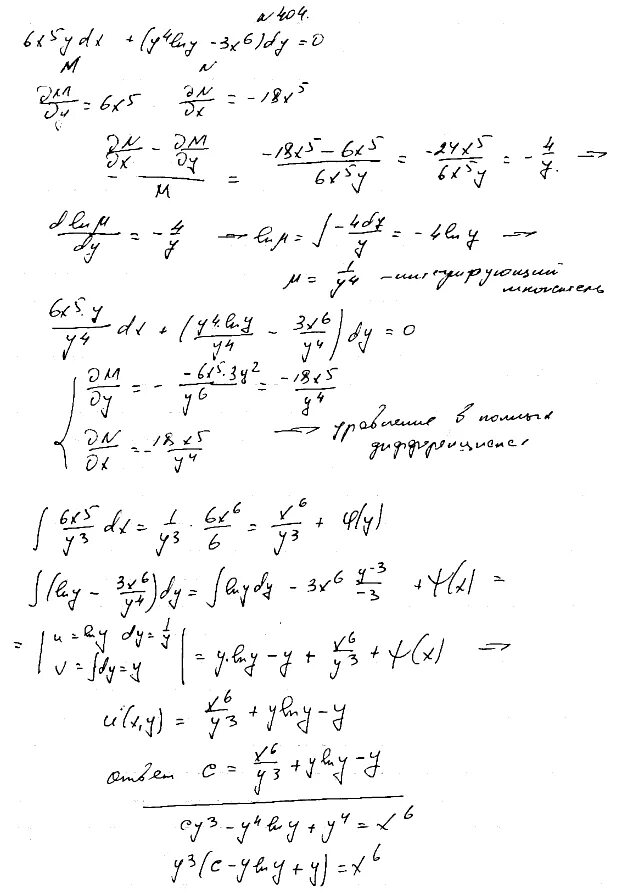 N 404.
6x⁵y dx + (y⁴lny - 3x⁶)dy = 0
M N
∂M/∂y = 6x⁵ ∂N/∂x = -18x⁵
(∂N/∂x - ∂M/∂y)/M = (-18x⁵ - 6x⁵)/(6x⁵y) = -24x⁵/(6x⁵y) = -4/y. →
dlnμ/dy = -4/y → lnμ = ∫ -4dy/y = -4lny →
μ = 1/y⁴ - интегрирующий
множитель
6x⁵·y/y⁴ dx + (y⁴·lny/y⁴ - 3x⁶/y⁴) dy = 0
{ ∂M/∂y = - -6x⁵·3y²/y⁶ = -18x⁵/y⁴
∂N/∂x = -18x⁵/y⁴ → уравнение в полных
дифференциалах
∫ 6x⁵/y³ dx = 1/y³ · 6x⁶/6 = x⁶/y³ + φ(y)
∫(lny - 3x⁶/y⁴)dy = ∫lny dy - 3x⁶ y⁻³/-3 + ψ(x) =
= | u = lny dy = 1/y v = ∫dy = y | = y·lny - y + x⁶/y³ + ψ(x) →
u(x,y) = x⁶/y³ + ylny - y
ответ c = x⁶/y³ + ylny - y
cy³ - y⁴lny + y⁴ = x⁶
y³(c - ylny + y) = x⁶